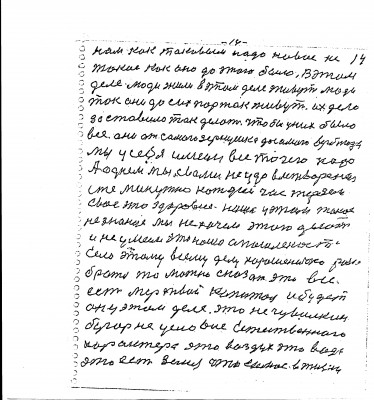 -14-
нам как таковым надо новое не 14
такое как оно до этого было. В этом
деле люди жили в этом деле живут люди
так они до сих пор так живут. их дело
заставило так делать. чтобы у них было
все. они от самого зернышка до самого
мы у себя имеем все то чего надо
А одним мы своим неудовлетворены
минутно каждый час теряем
свое это здоровье. наше у этом такое
незнание мы не хочем этого делать
и не умеем это наша отсталость.
Село этому всему делу хорошенько
брать то можно сказать это все.
есть мертвый капитал и будет
он у этом деле. это не чувилкин
бугор не условие Естественного
характера это воздух это вода
это есть земля что самое в жизни